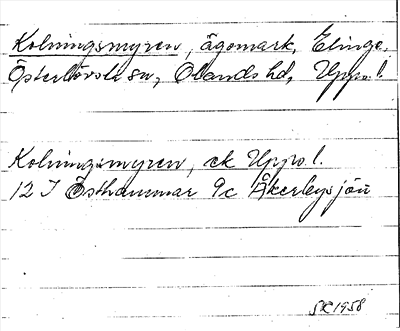 Kolningsmyren, ägomark, Elinge,
Österlövsta sn, Olands hd, Uppo.l.
Kolningsmyren, ek Uppo.l.
12 I Östhammar 9c Åkerbysjön
SK 1958